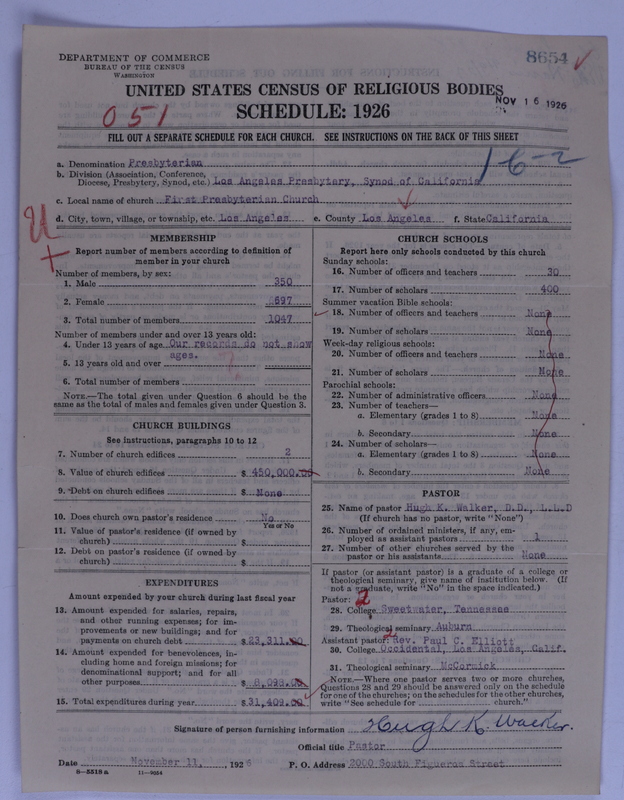 DEPARTMENT OF COMMERCE
BUREAU OF THE CENSUS
WASHINGTON
8654
UNITED STATES CENSUS OF RELIGIOUS BODIES
NOV 16 1926
SCHEDULE: 1926
051
FILL OUT A SEPARATE SCHEDULE FOR EACH CHURCH. SEE INSTRUCTIONS ON THE BACK OF THIS SHEET
16-2
a. Denomination Presbyterian
b. Division (Association, Conference,
Diocese, Presbytery, Synod, etc.) Los Angeles Presbytery, Synod of California
c. Local name of church First Presbyterian Church
d. City, town, village, or township, etc. Los Angeles e. County Los Angeles f. State California
MEMBERSHIP
Report number of members according to definition of
member in your church
Number of members, by sex:
1. Male 350
2. Female 697
3. Total number of members 1047
Number of members under and over 13 years old:
4. Under 13 years of age Our records do not show
ages.
5. 13 years old and over
6. Total number of members
NOTE.—The total given under Question 6 should be the
same as the total of males and females given under Question 3.
CHURCH BUILDINGS
See instructions, paragraphs 10 to 12
7. Number of church edifices 2
8. Value of church edifices $ 450,000.00
9. Debt on church edifices $ None
10. Does church own pastor's residence No
Yes or No
11. Value of pastor's residence (if owned by
church) $
12. Debt on pastor's residence (if owned by
church) $
EXPENDITURES
Amount expended by your church during last fiscal year
13. Amount expended for salaries, repairs,
and other running expenses; for im-
provements or new buildings; and for
payments on church debt $23,311.00
14. Amount expended for benevolences, in-
cluding home and foreign missions; for
denominational support; and for all
other purposes $ 8,098.00
15. Total expenditures during year $31,409.00
CHURCH SCHOOLS
Report here only schools conducted by this church
Sunday schools:
16. Number of officers and teachers 30
17. Number of scholars 400
Summer vacation Bible schools:
18. Number of officers and teachers None
19. Number of scholars None
Week-day religious schools:
20. Number of officers and teachers None
21. Number of scholars None
Parochial schools:
22. Number of administrative officers None
23. Number of teachers—
a. Elementary (grades 1 to 8) None
b. Secondary None
24. Number of scholars—
a. Elementary (grades 1 to 8) None
b. Secondary None
PASTOR
25. Name of pastor Hugh K. Walker, D.D., L.L.D
(If church has no pastor, write "None")
26. Number of ordained ministers, if any, em-
ployed as assistant pastors 1
27. Number of other churches served by the
pastor or his assistants None
If pastor (or assistant pastor) is a graduate of a college or
theological seminary, give name of institution below. (If
not a graduate, write "No" in the space indicated.)
Pastor: 2
28. College Sweetwater, Tennessee
29. Theological seminary Auburn
Assistant pastor: Rev. Paul C. Elliott
30. College Occidental, Los Angeles, Calif.
31. Theological seminary McCormick
NOTE.—Where one pastor serves two or more churches,
Questions 28 and 29 should be answered only on the schedule
for one of the churches; on the schedules for the other churches,
write "See schedule for church."
Signature of person furnishing information Hugh K. Walker.
Official title Pastor
Date November 11, 1926 P. O. Address 2000 South Figueroa Street
8-5518a 11-9054